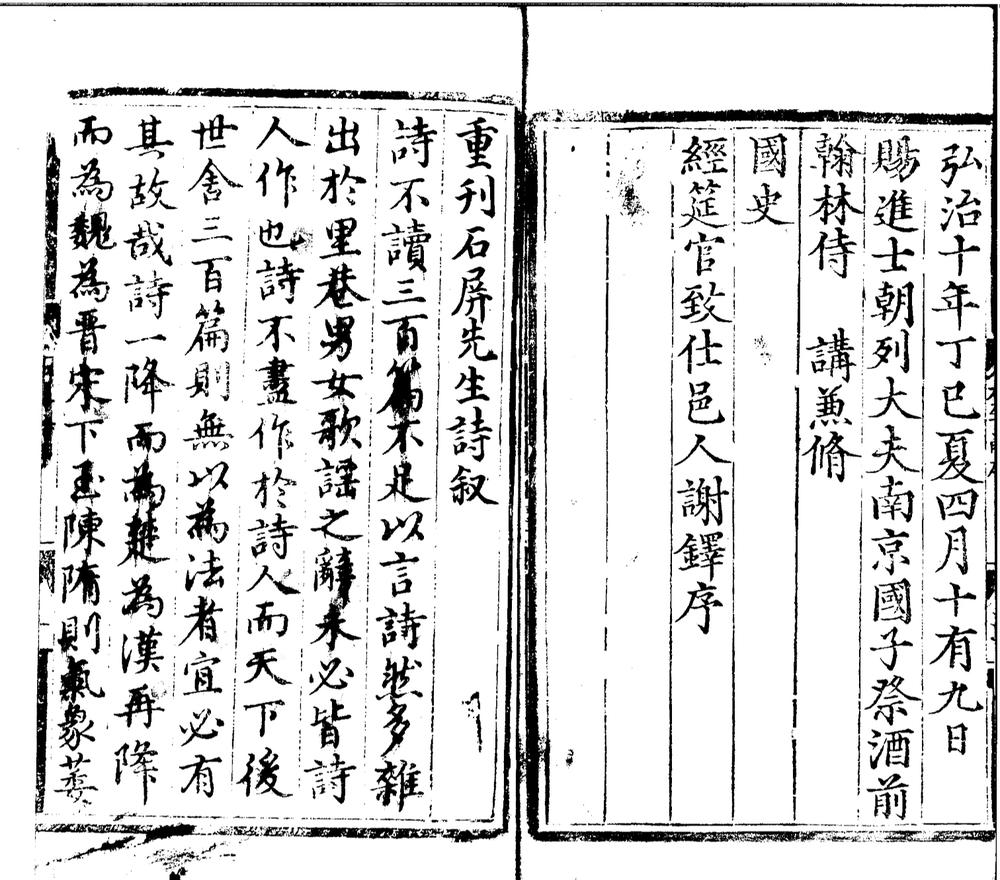 弘治十年丁巳夏四月十有九日
賜進士朝列大夫南京國子祭酒前
翰林侍　講兼脩
國史
經筵官致仕邑人謝鐸序
重刊石屏先生詩叙
詩不讀三百篇不足以言詩然多雜
出於里巷男女歌謡之辭未必皆詩
人作也詩不盡作於詩人而天下後
世舍三百篇則無以為法者宜必有
其故哉詩一降而為楚為漢再降
而為魏為晋宋下至陳隋則氣象萎